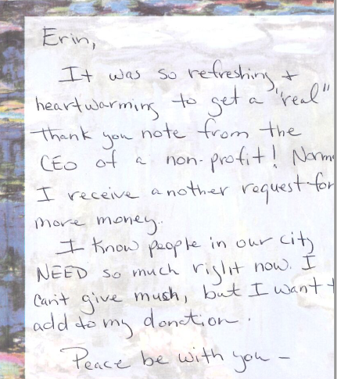 Erin,
It was so refreshing +
heartwarming to get a "real"
thank you note from the
CEO of a non-profit! Norm
I receive another request for
more money.
I know people in our city
NEED so much right now. I
can't give mush, but I want t
add to my donation.
Peace be with you —